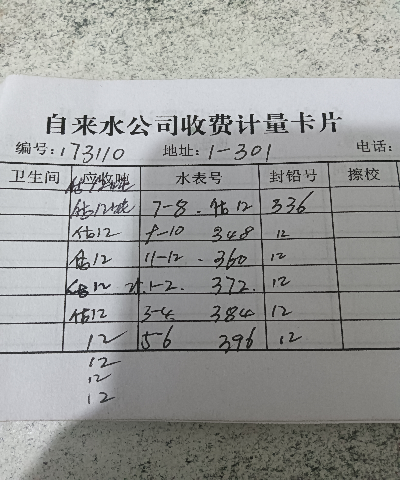 自来水公司收费计量卡片
编号: 173110 地址: 1-301 电话:
卫生间 应收吨 水表号 封铅号 擦校
估12吨 7-8. 估12 336
估12 9-10 348 12
估12 11-12. 360 12
估12 21.1-2. 372. 12
估12 3-4 384 12
12 5-6 396 12
12
12
12